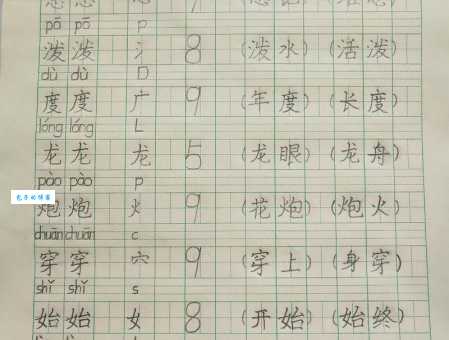 pō pō p
泼 泼 氵 8 (泼水) (活泼)
dù dù D
度 度 广 9 (年度) (长度)
lóng lóng L
龙 龙 龙 5 (龙眼) (龙舟)
pào pào p
炮 炮 火 9 (花炮) (炮火)
chuān chuān c
穿 穿 穴 9 (穿上) (身穿)
shǐ shǐ s
始 始 女 8 (开始) (始终)